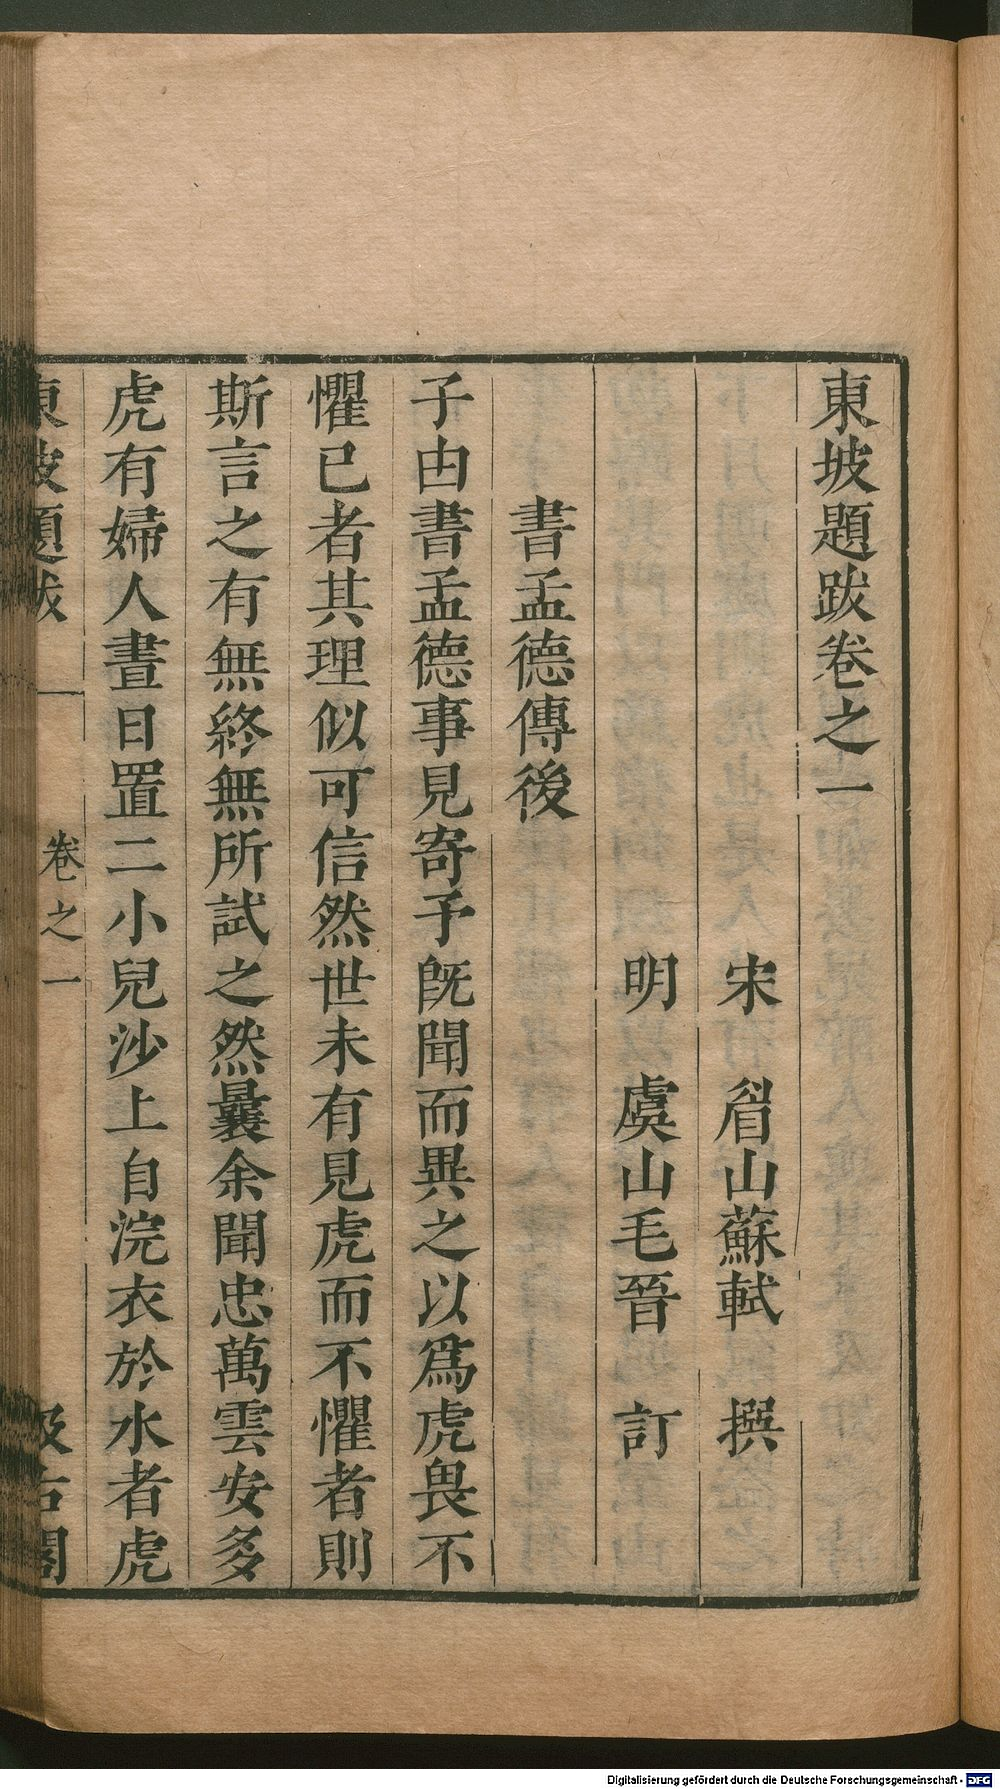 東坡題跋卷之一
宋 眉山蘇軾 撰
明 虞山毛晉 訂
書孟德傳後
子由書孟德事見寄予旣聞而異之以爲虎畏不
懼已者其理似可信然世未有見虎而不懼者則
斯言之有無終無所試之然曩余聞忠萬雲安多
虎有婦人晝日置二小兒沙上自浣衣於水者虎
東坡題跋 卷之一 汲古閣
Digitalisierung gefördert durch die Deutsche Forschungsgemeinschaft - DFG